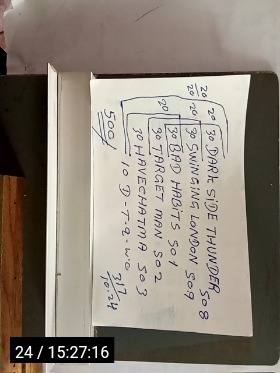 20 20
20 20
20 30 DARK SIDE THUNDER 508
30 SWINGING LONDON 509
30 BAD HABITS 501
20 30 TARGET MAN 502
30 HAVECHATMA 503
10 D-T-2-W0
500/
317
10.24
24 / 15:27:16